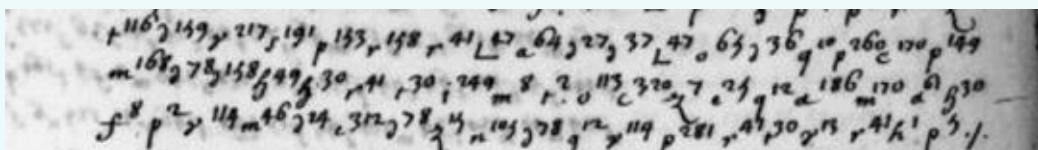 r 116 z 159 y 217 s 191 p 153 r 158 r 41 L 47 a 64 z 27 z 37 L 47 o 65 z 36 q 10 p 260 c 170 p 149
m 168 z 78 z 158 h 49 h 30 r 41 r 30 i 249 m 8 r 2 o 113 c 320 z 7 e 25 q 12 a 186 m 170 a 61 h 30
f 8 p 2 y 114 m 46 z 24 c 312 z 78 z 15 n 105 z 78 q 12 y 114 p 281 r 41 r 30 y 13 r 41 h 1 p 5 ./.